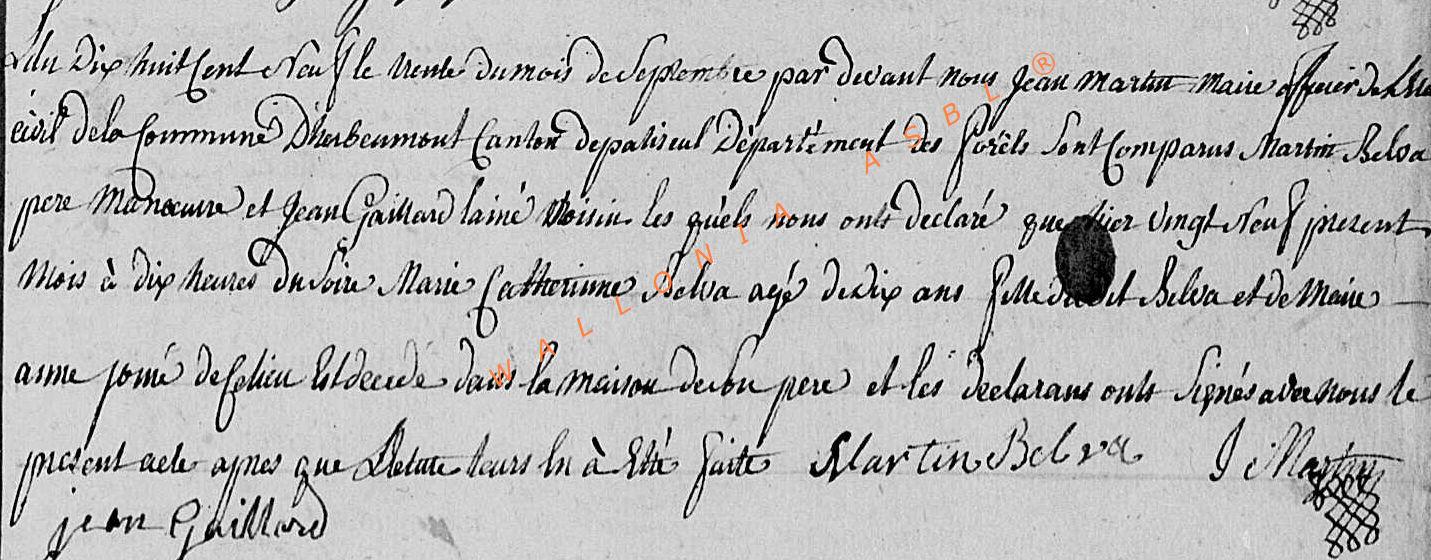 L'an Dix huit Cent Neuf le trente du mois de Septembre par devant nous Jean Martin Maire officier de L'Etat
civil de la Commune D'herbeumont Canton de paliseul Départément des forêts Sont Comparus Martin Belva
pere Manœuvre et Jean Gaillard lainé Voisin les quels nous onts declaré que hier vingt Neuf present
Mois à dix heures du Soire Marie Catherinne Belva agé de dix ans fille dudit Belva et de Marie
anne jomé de Ce lieu Est decedé dans la maison de Son pere et les declarans onts Signés avec nous le
present acte apres que Lecture leurs En à Etté faitte Martin Belva J Martin
jean Gaillard
WALLONIA ASBL ®